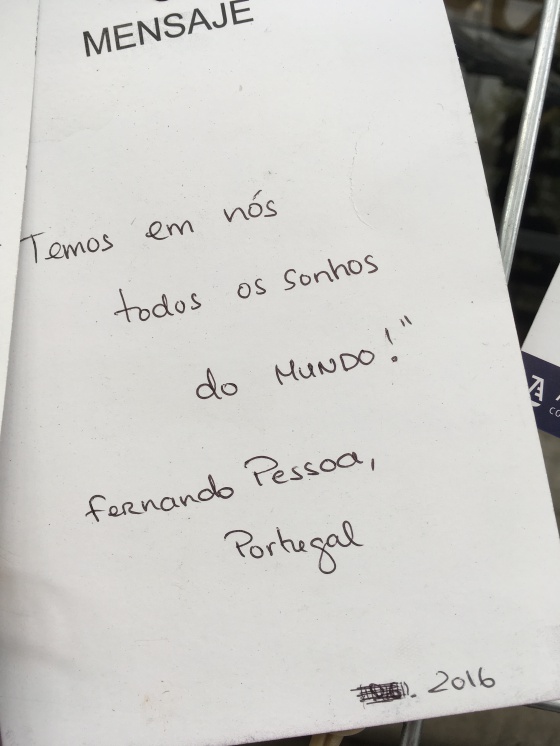 MENSAJE
Temos em nós
todos os sonhos
do MUNDO!"
Fernando Pessoa,
Portugal
. 2016
A